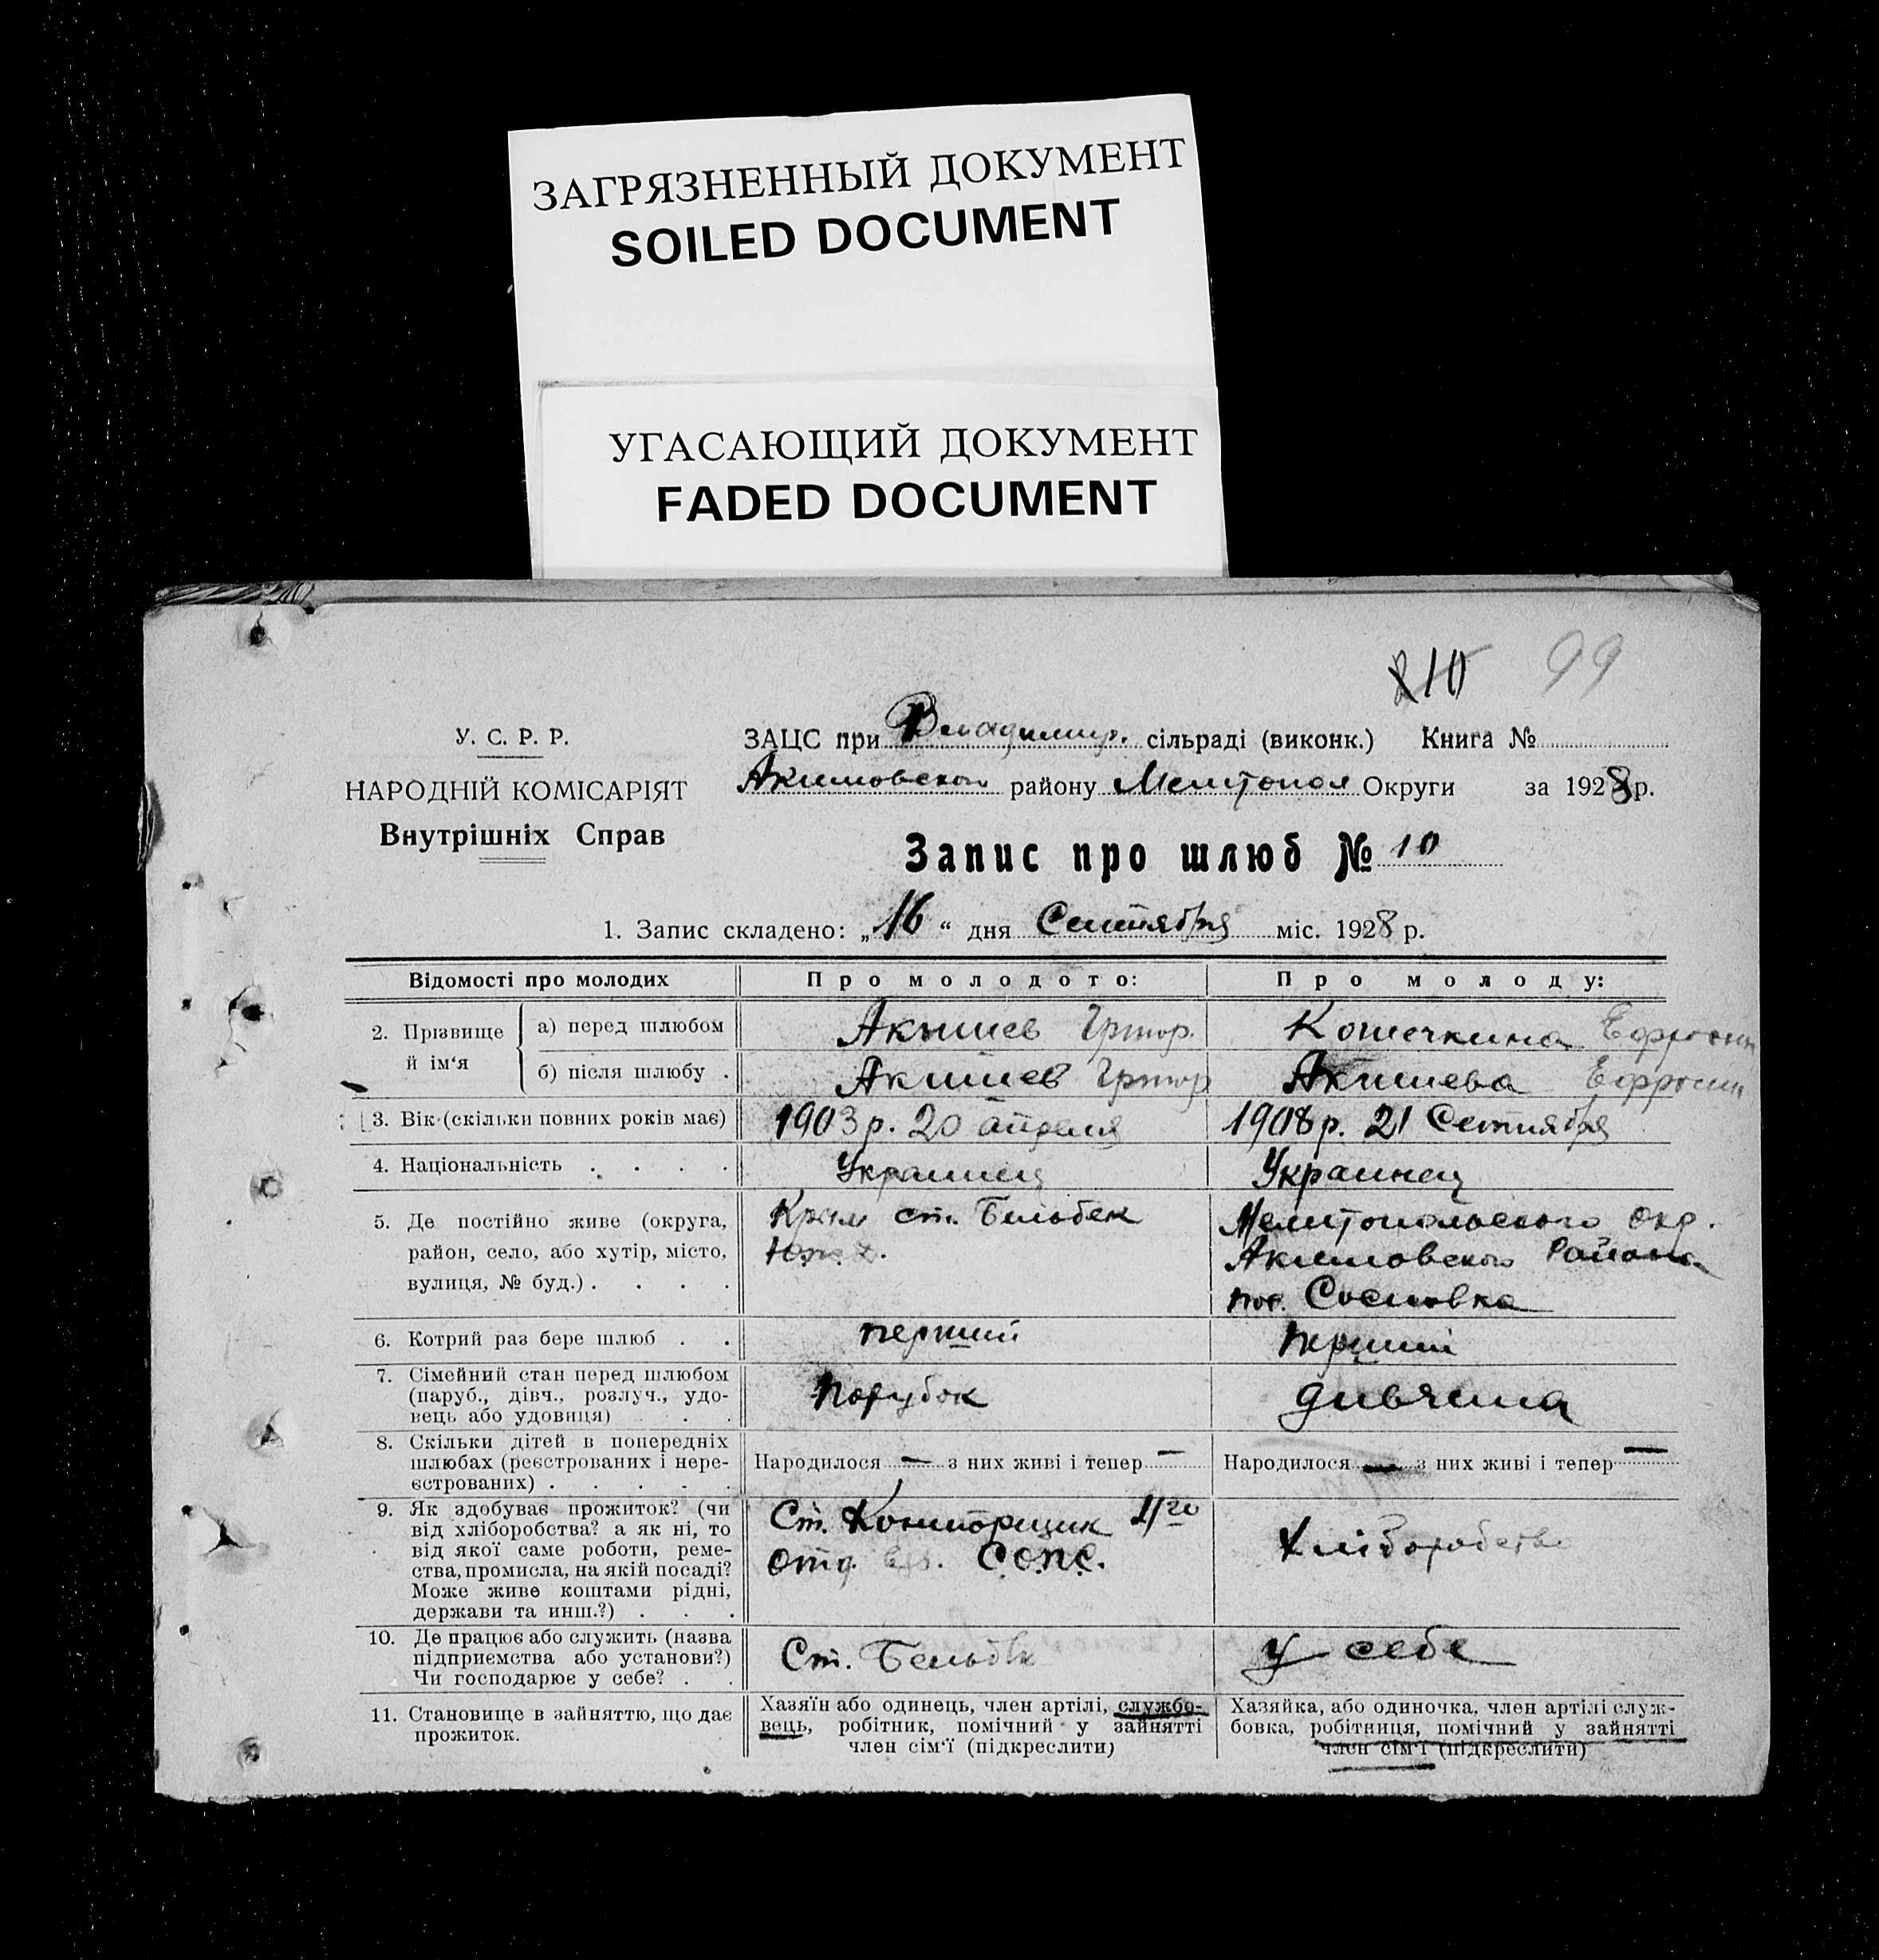 ЗАГРЯЗНЕННЫЙ ДОКУМЕНТ
SOILED DOCUMENT
УГАСАЮЩИЙ ДОКУМЕНТ
FADED DOCUMENT
99
У. С. Р. Р.
НАРОДНІЙ КОМІСАРІЯТ
Внутрішніх Справ
ЗАЦС при Владимир. сільраді (виконк.) Книга №
Акимовского району Мелитопол Округи за 1928 р.
Запис про шлюб № 10
1. Запис складено: „16“ дня Сентября міс. 1928 р.
Відомості про молодих
Про молодого:
Про молоду:
2. Прізвище й ім‘я
а) перед шлюбом
Акишев Григор.
Кошечкина Ефросин
б) після шлюбу .
Акишев Григор
Акишева Ефросин
3. Вік (скільки повних років має)
1903 р. 20 апреля
1908 р. 21 Сентября
4. Національність . . . .
Украинец
Украинец
5. Де постійно живе (округа,
район, село, або хутір, місто,
вулиця, № буд.) . . . .
Крым ст. Бельбек
Мелитопольского окр.
Акимовского Района
пос. Сосновка
6. Котрий раз бере шлюб . .
перший
перший
7. Сімейний стан перед шлюбом
(паруб., дівч., розлуч., удо-
вець або удовиця) . .
Порубок
дивчина
8. Скільки дітей в попередніх
шлюбах (реєстрованих і нере-
єстрованих) . . . . .
Народилося — з них живі і тепер —
Народилося — з них живі і тепер —
9. Як здобуває прожиток? (чи
від хліборобства? а як ні, то
від якої саме роботи, реме-
ства, промисла, на якій посаді?
Може живе коштами рідні,
держави та инш.?) . . .
Ст. Конторщик
отд. С.О.П.С.
Хліборобство
10. Де працює або служить (назва
підприємства або установи?)
Чи господарює у себе? . .
Ст. Бельбек
у себе
11. Становище в зайняттю, що дає
прожиток.
Хазяїн або одинець, член артілі, службо-
вець, робітник, помічний у зайнятті
член сім‘ї (підкреслити)
Хазяйка, або одиночка, член артілі служ-
бовка, робітниця, помічний у зайнятті
член сім‘ї (підкреслити)